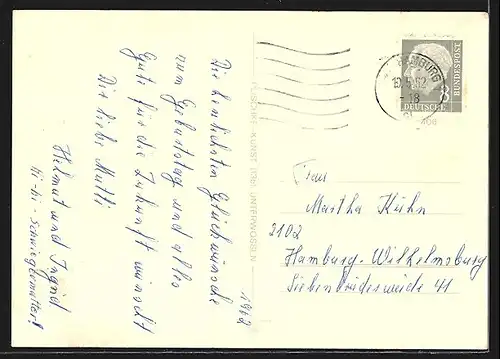 Die herzlichsten Glückwünsche
zum Geburtstag und alles
Gute für die Zukunft wünscht
Dir liebe Mutti
Helmut und Ingrid
hi-hi - Schwiegermutter!
1962
HAMBURG
- 18
DEUTSCHE
BUNDESPOST
8
Frau
Martha Kühn
2102
Hamburg-Wilhelmsburg
Siebenbrüderweide 41